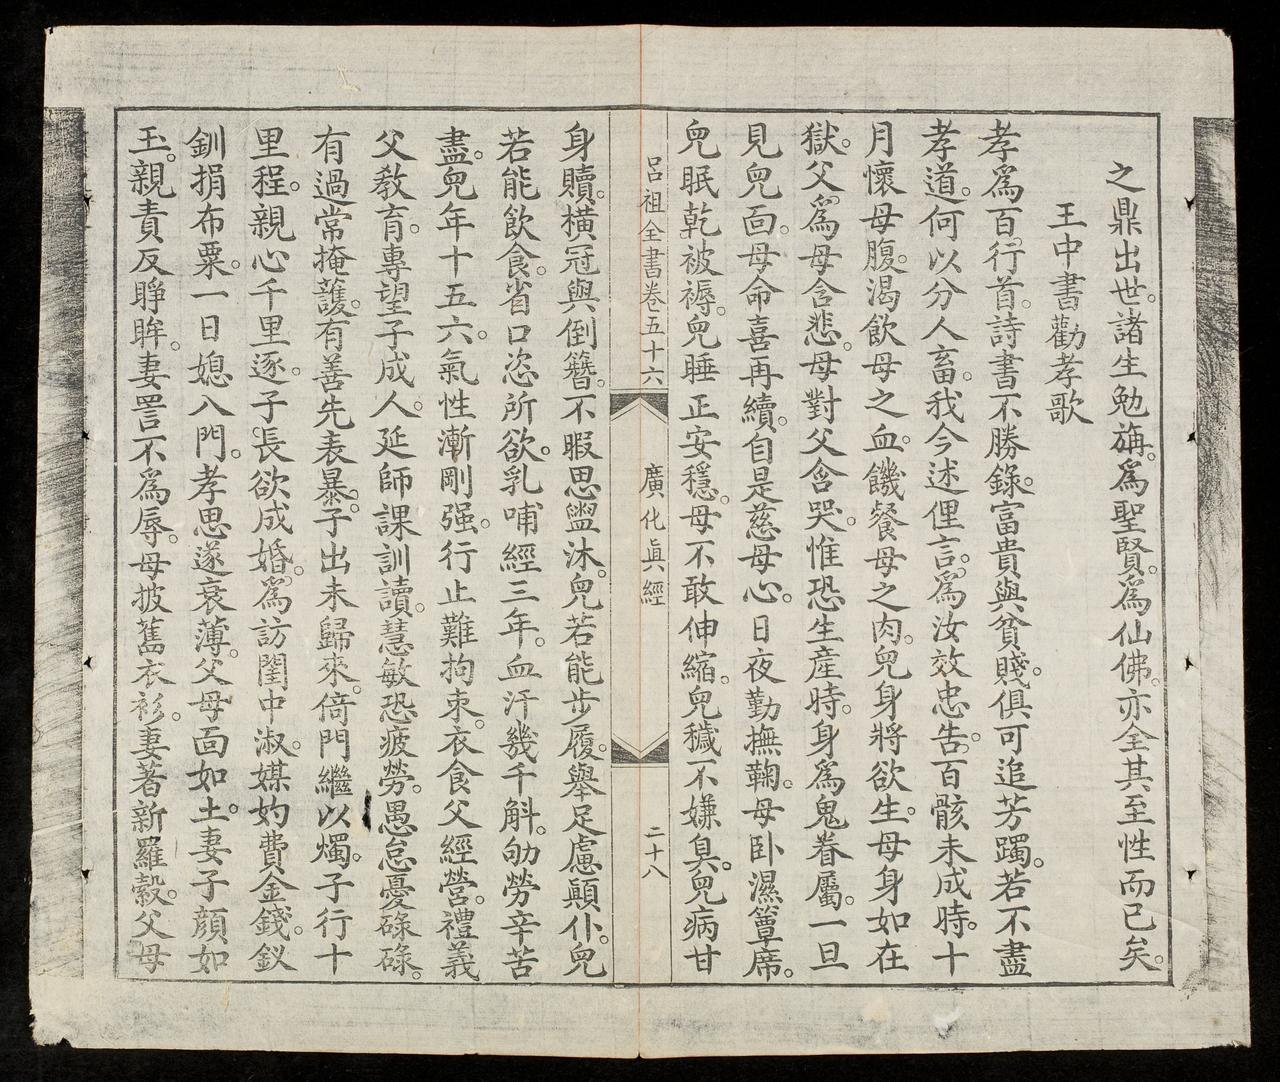 之鼎出世。諸生勉旃。爲聖賢。爲仙佛。亦全其至性而已矣。
王中書勸孝歌
孝爲百行首。詩書不勝錄。富貴與貧賤。俱可追芳躅。若不盡
孝道。何以分人畜。我今述俚言。爲汝效忠告。百骸未成時。十
月懷母腹。渴飲母之血。饑餐母之肉。兒身將欲生。母身如在
獄。父爲母含悲。母對父含哭。惟恐生產時。身爲鬼眷屬。一旦
見兒面。母命喜再續。自是慈母心。日夜勤撫鞠。母卧濕簟席。
兒眠乾被褥。兒睡正安穩。母不敢伸縮。兒穢不嫌臭。兒病甘
呂祖全書卷五十六 廣化眞經 二十八
身贖。橫冠與倒簪。不暇思盥沐。兒若能步履。舉足慮顚仆。兒
若能飲食。省口恣所欲。乳哺經三年。血汗幾千斛。劬勞辛苦
盡。兒年十五六。氣性漸剛强。行止難拘束。衣食父經營。禮義
父教育。專望子成人。延師課訓讀。慧敏恐疲勞。愚怠憂碌碌。
有過常掩護。有善先表暴。子出未歸來。倚門繼以燭。子行十
里程。親心千里逐。子長欲成婚。爲訪閨中淑。媒妁費金錢。釵
釧捐布粟。一日媳入門。孝思遂衰薄。父母面如土。妻子顏如
玉。親責反睜眸。妻詈不爲辱。母披舊衣衫。妻著新羅縠。父母